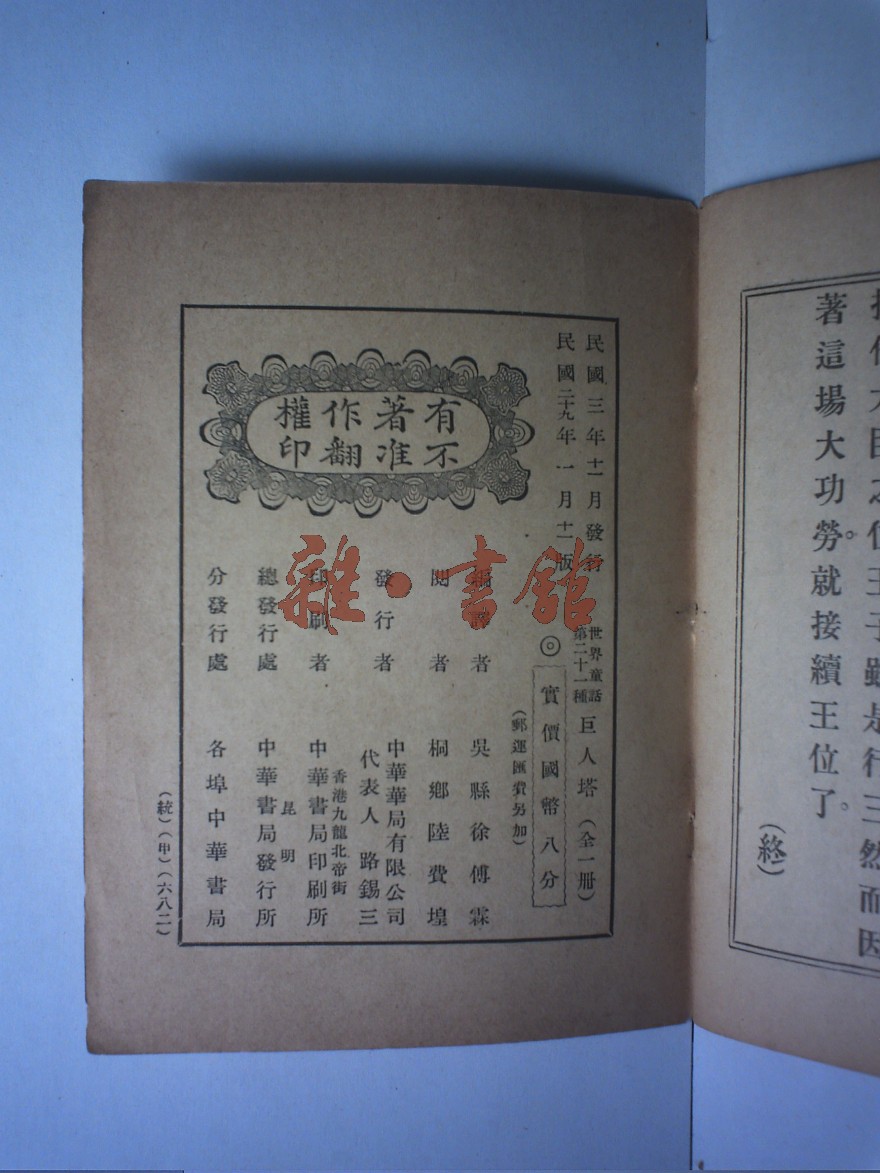 著這場大功勞。就接續王位了。
(終)
民國三年十一月發行
民國二十九年一月十一版
世界童話
第二十一種
巨人塔(全一册)
◎實價國幣八分
(郵運匯費另加)
有著作權
不准翻印
者 吳縣徐傅霖
閱者 桐鄉陸費堭
發行者 中華華局有限公司
代表人 路錫三
印刷者 香港九龍北帝街
中華書局印刷所
總發行處 昆明
中華書局發行所
分發行處 各埠中華書局
(統)(甲)(六八二)
雜·書館